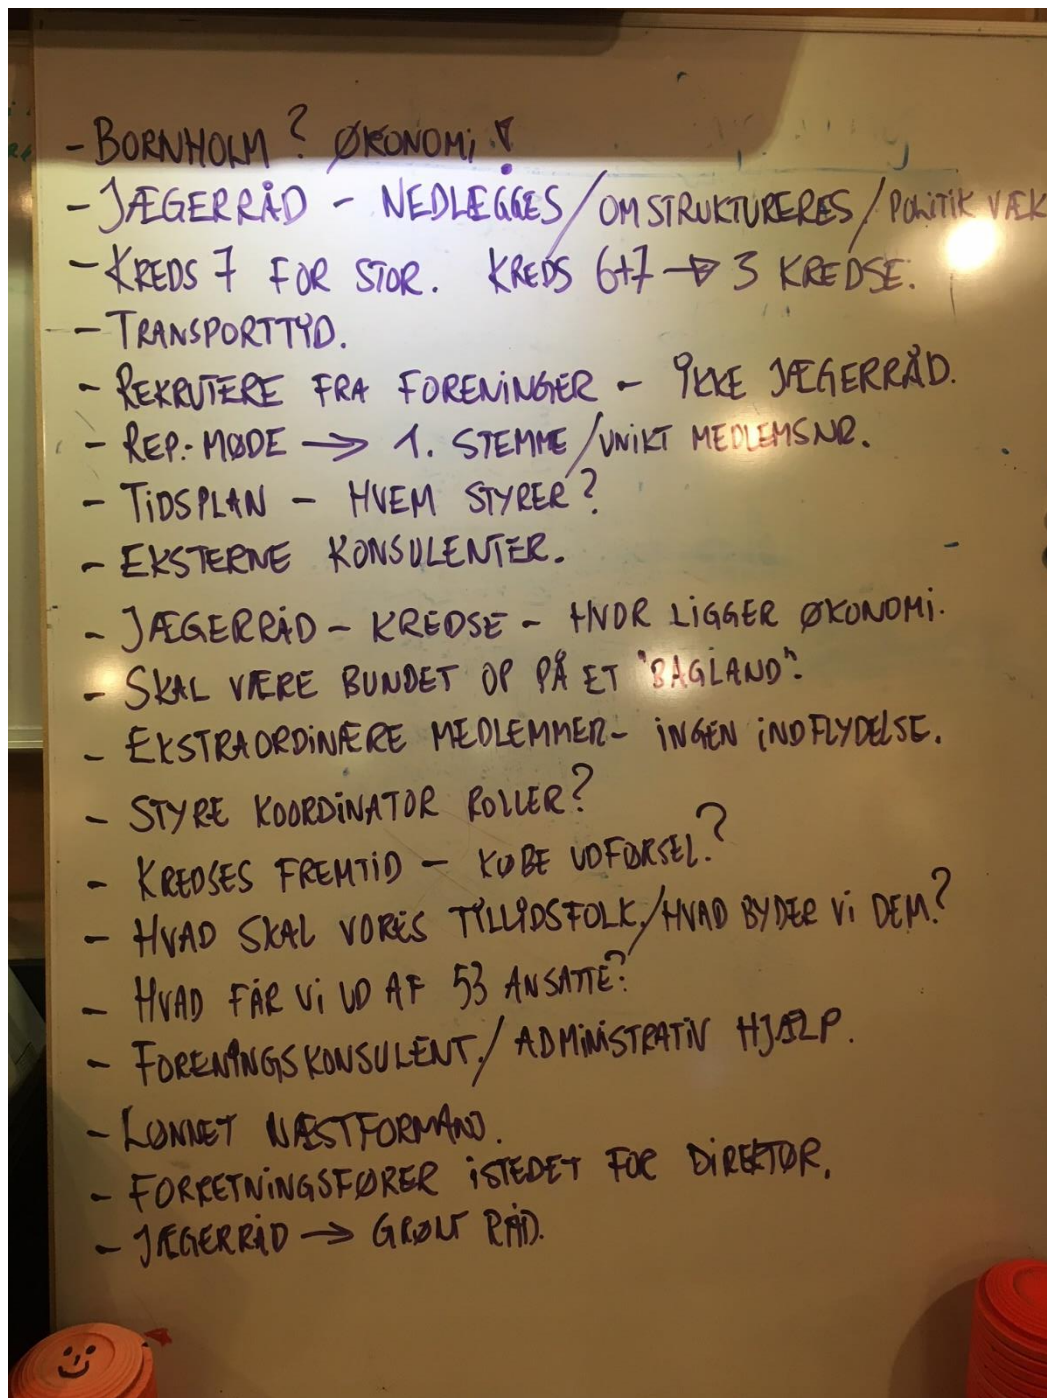 - BORNHOLM ? ØKONOMI !
- JÆGERRÅD - NEDLÆGGES / OMSTRUKTURERES / POLITIK VÆK
- KREDS 7 FOR STOR. KREDS 6+7 → 3 KREDSE.
- TRANSPORTTYD.
- REKRUTERE FRA FORENINGER - IKKE JÆGERRÅD.
- REP.-MØDE → 1. STEMME / UNIKT MEDLEMSNR.
- TIDSPLAN - HVEM STYRER ?
- EKSTERNE KONSULENTER.
- JÆGERRÅD - KREDSE - HVOR LIGGER ØKONOMI.
- SKAL VÆRE BUNDET OP PÅ ET "BAGLAND".
- EKSTRAORDINÆRE MEDLEMMER - INGEN INDFLYDELSE.
- STYRE KOORDINATOR ROLLER ?
- KREDSES FREMTID - KØBE UDFØRSEL. ?
- HVAD SKAL VORES TILLIDSFOLK. / HVAD BYDER VI DEM. ?
- HVAD FÅR VI UD AF 53 ANSATTE ?
- FORENINGSKONSULENT. / ADMINISTRATIV HJÆLP.
- LØNNET NÆSTFORMAND.
- FORRETNINGSFØRER ISTEDET FOR DIREKTØR.
- JÆGERRÅD → GRØNT RÅD.